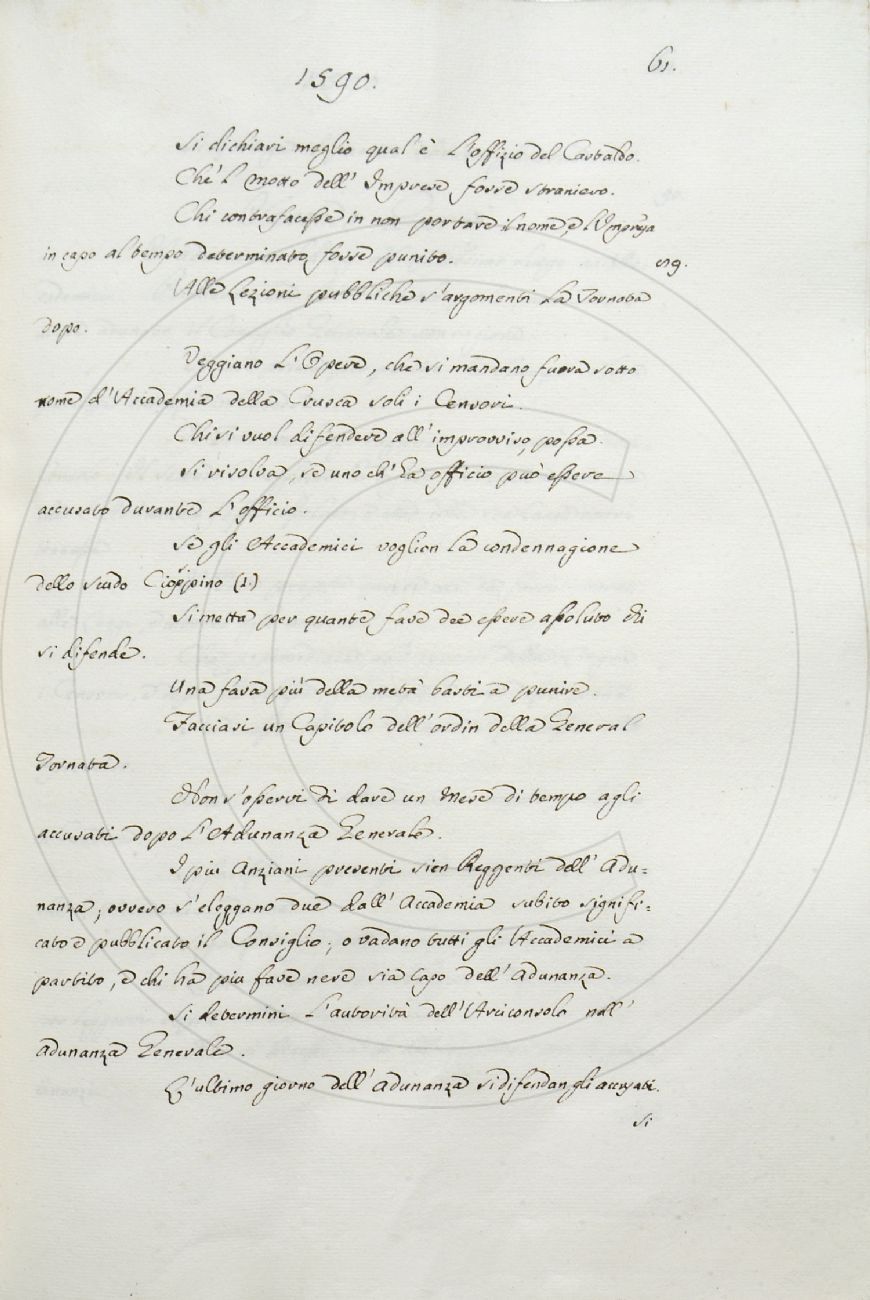 61.
1590.
Si dichiari meglio qual è L'offizio del Castaldo.
Che 'l Motto dell' Imprese fosse straniero.
Chi contrafacesse in non portare il nome, e l'Impresa
in capo al tempo determinato, fosse punito.
Alle Lezioni pubbliche s'argomenti la Tornata
dopo.
Veggiano L'Opere, che si mandano fuora sotto
nome d'Accademia della Crusca soli i Censori.
Chi si vuol difendere all' improvviso, possa.
Si risolva, se uno ch' ha officio può essere
accusato durante L'officio.
Se gli Accademici voglion la condennagione
dello scudo Cioppino (1.)
Si metta per quante fave dee essere assoluto chi
si difende.
Una fava più della metà basti a punire.
Facciasi un Capitolo dell'ordin della General
Tornata.
Non s'osservi di dare un Mese di tempo agli
accusati dopo L'Adunanza Generale.
I piu Anziani presenti sien Reggenti dell' Adu=
nanza; ovvero s'eleggano due dall' Accademia subito signifi=
cato e pubblicato il Consiglio; o vadano tutti gli Accademici a
partito, e chi ha piu fave nere sia Capo dell' Adunanza.
Si determini L'autorità dell'Arciconsolo nell'
Adunanza Generale.
L'ultimo giorno dell' Adunanza si difendan gli accusati.
si